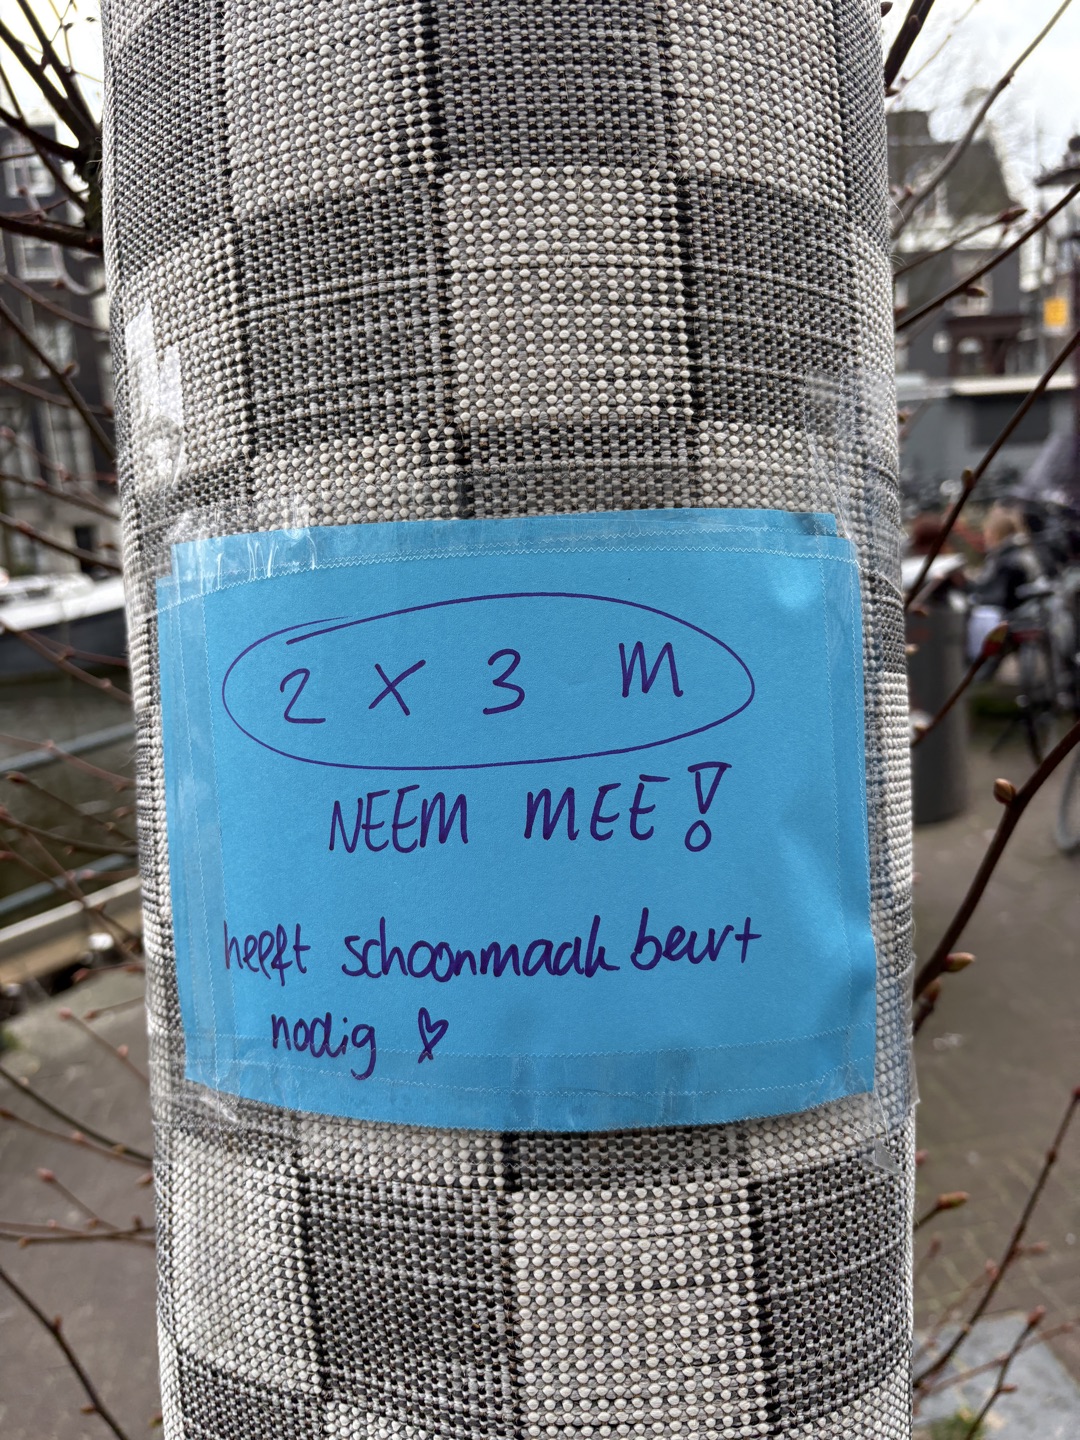 2 x 3 m
NEEM MEE!
heeft schoonmaak beurt
nodig ♡